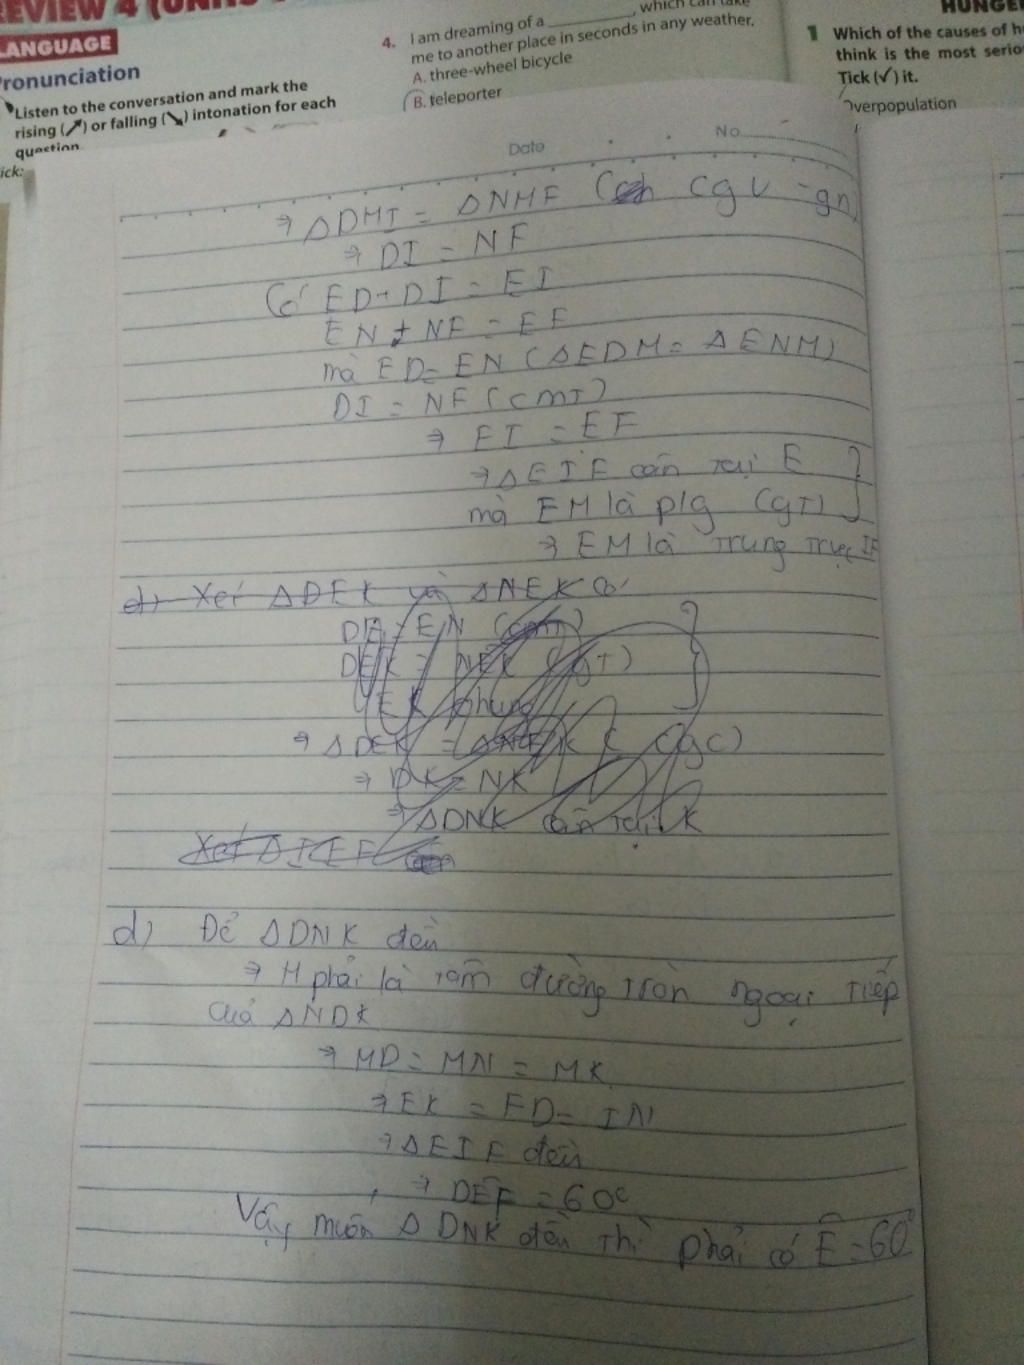 REVIEW 4 (UNITS
LANGUAGE
Pronunciation
Listen to the conversation and mark the
rising (↗) or falling (↘) intonation for each
question.
ick:
4. I am dreaming of a ________, which can take
me to another place in seconds in any weather.
A. three-wheel bicycle
B. teleporter
HUNGER
1 Which of the causes of h
think is the most serio
Tick (✓) it.
Overpopulation
Date No
⇒ ΔDMI = ΔNMF ( cgv - gn)
⇒ DI = NF
Có ED + DI = EI
EN + NF = EF
mà ED = EN (ΔEDM = ΔENM)
DI = NF (cmt)
⇒ EI = EF
⇒ ΔEIF cân tại E
mà EM là p/g (gt)
⇒ EM là trung trực IF
d) Xét ΔDEK và ΔNEK có
DE = EN (cmt)
DEK = NEK (gt)
EK chung
⇒ ΔDEK = ΔNEK (cgc)
⇒ DK = NK
⇒ ΔDNK cân tại K
Xét ΔIEF
d) Để ΔDNK đều
⇒ M phải là tâm đường tròn ngoại tiếp
của ΔNDK
⇒ MD = MN = MK
⇒ EK = FD = IN
⇒ ΔEIF đều
⇒ DEF = 60°
Vậy muốn ΔDNK đều thì phải có Ê = 60°